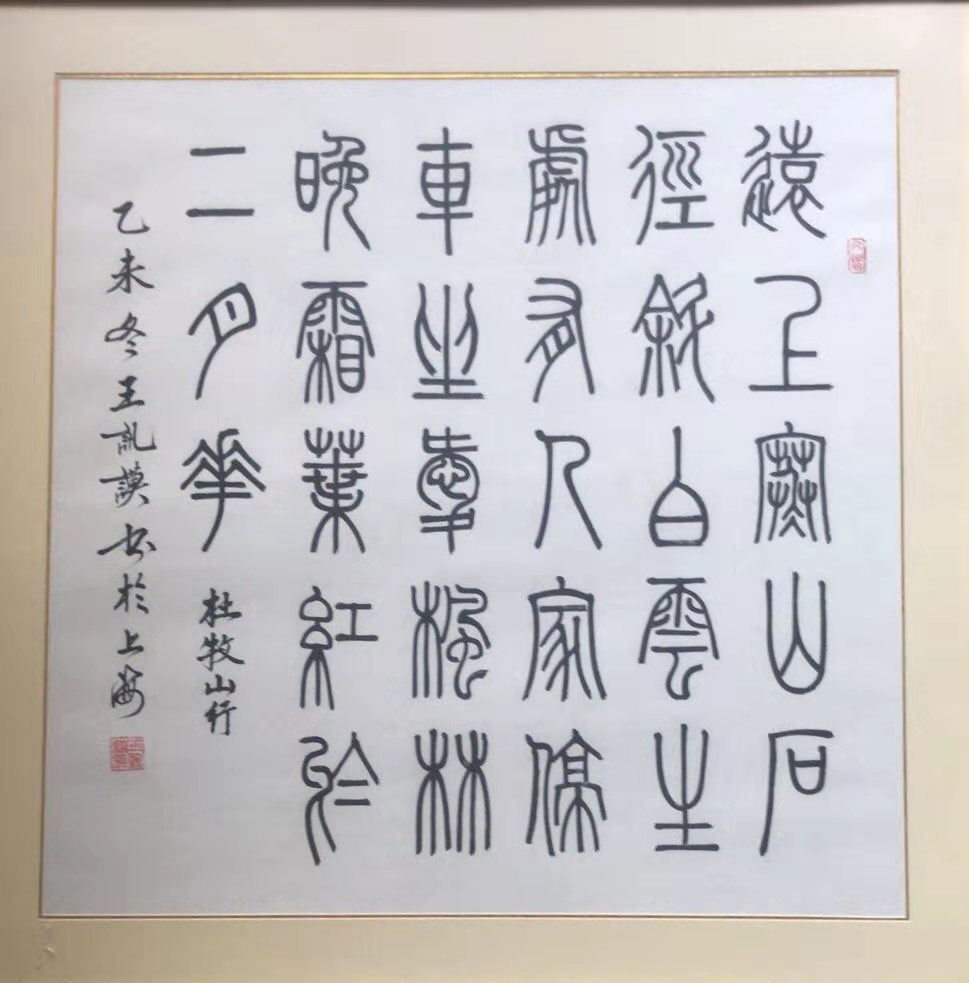 遠上寒山石
徑斜白雲生
處有人家停
車坐愛楓林
晚霜葉紅於
二月華
杜牧山行
乙未冬王訊謨书於上海